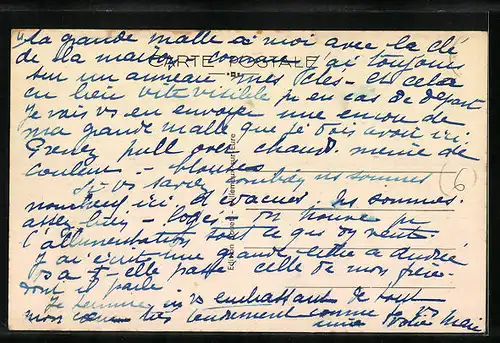 la grande malle à moi avec la clé
de la maison - comme j'ai toujours
CARTE POSTALE
sur un anneau mes clés - et cela
en lieu vite visible pr en cas de départ
Je vais vs en envoyer une encore de
ma grande malle que je dois avoir ici.
Prenez pull over chaud. même de
couleur - blouses
Si vs saviez combien ns sommes
nombreux ici d'évacués ns sommes
assez bien - logés - on trouve pr
l'alimentation tout ce que on veut.
J'ai écrit une grande lettre à André
vs a-t-elle passé celle de mon frère
dont il parle.
Je termine en vs embrassant de tout
mon cœur très tendrement comme je vs
aime Votre
Edition
sur-Eure
6